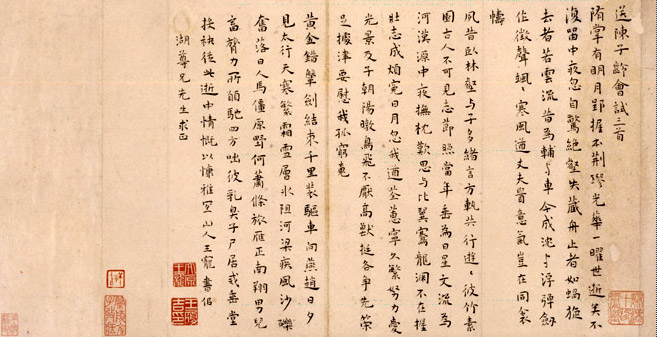 送陳子齡會試三首
隋掌有明月郢握不荆璆光華一曜世逝矣不
復留中夜忽自驚絕壑失藏舟止者如蝸旋
去者若雲流昔為輔與車今成沈與浮彈劍
作徵聲颯颯寒風遒丈夫貴意氣豈在同衾
幬
夙昔臥林壑与子多緒言方軌共行遊遊彼竹素
園古人不可見志節照當年垂為日星文流為
河漢源中夜撫枕歎思与比翼騫龍淵不在握
壯志成煩冤日月忽我遒荃蕙寧久繁努力愛
光景及子朝陽暾鳥飛不厭高獸挺各爭先策
足據津要慰我孤窮
黄金錯擊劍結束千里裝驅車向燕趙日夕
見太行天寒繁霜雪層冰阻河梁疾風沙礫
奮落日人馬僵原野何蕭條旅雁正南翔男兒
富膂力所願馳四方咄彼乳臭子尸居戒垂堂
接袂從此逝中情慨以慷雅宜山人王寵書似
湖尊兄先生求正